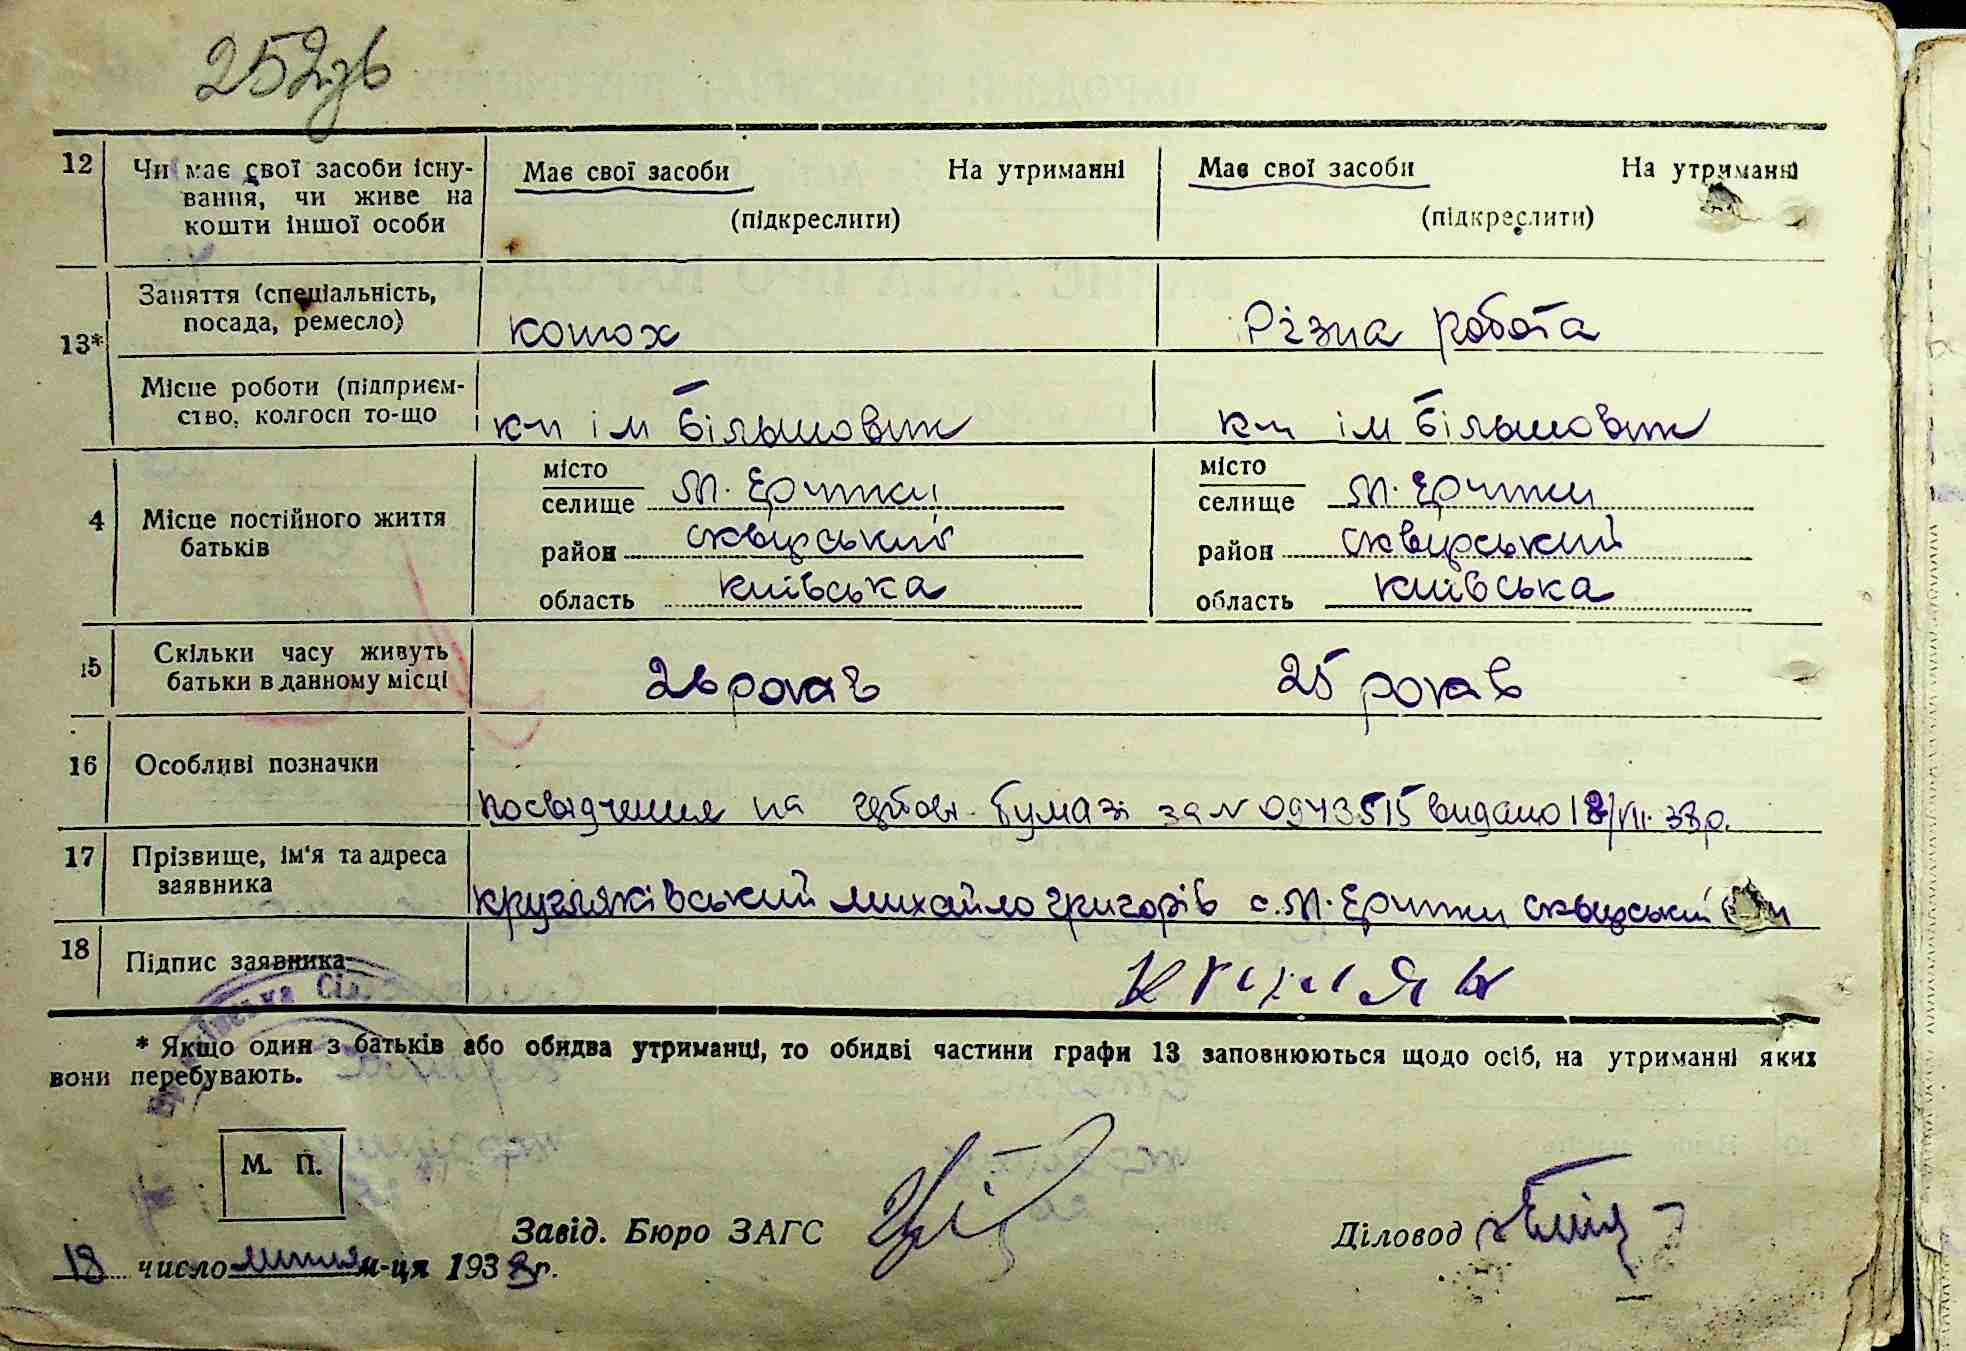 252зв
12 Чи має свої засоби існу-
вання, чи живе на
кошти іншої особи
Має свої засоби На утриманні
(підкреслити)
Має свої засоби На утриманні
(підкреслити)
13*
Заняття (спеціальність,
посада, ремесло)
конюх
Різна робота
Місце роботи (підприєм-
ство, колгосп то-що
к-п ім Більшовик
к-п ім Більшовик
4 Місце постійного життя
батьків
місто
селище М. Єрчики
район сквирський
область київська
місто
селище М. Єрчики
район сквирський
область київська
15 Скільки часу живуть
батьки в данному місці
26 років
25 років
16 Особливі позначки
посвідчення на гербові бумазі за № 0943515 видано 18/VII-38р.
17 Прізвище, ім'я та адреса
заявника
кругляківський михайло григорів с. М. Єрчики сквирський
18 Підпис заявника
* Якщо один з батьків або обидва утриманці, то обидві частини графи 13 заповнюються щодо осіб, на утриманні яких
вони перебувають.
М. П.
Завід. Бюро ЗАГС
Діловод
18 число липня м-ця 1938р.